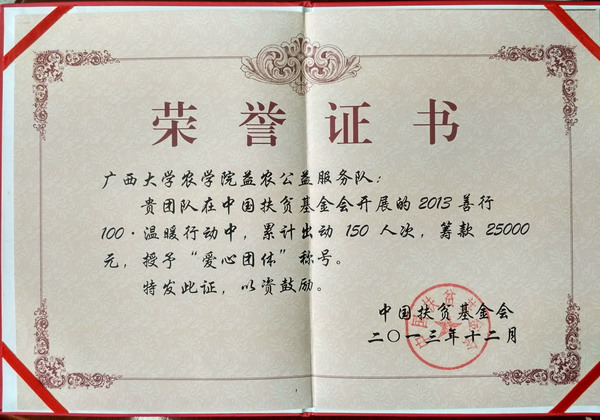 荣誉证书
广西大学农学院益农公益服务队：
贵团队在中国扶贫基金会开展的2013善行
100·温暖行动中，累计出动150人次，筹款25000
元，授予“爱心团体”称号。
特发此证，以资鼓励。
中国扶贫基金会
二〇一三年十二月
中国扶贫基金会